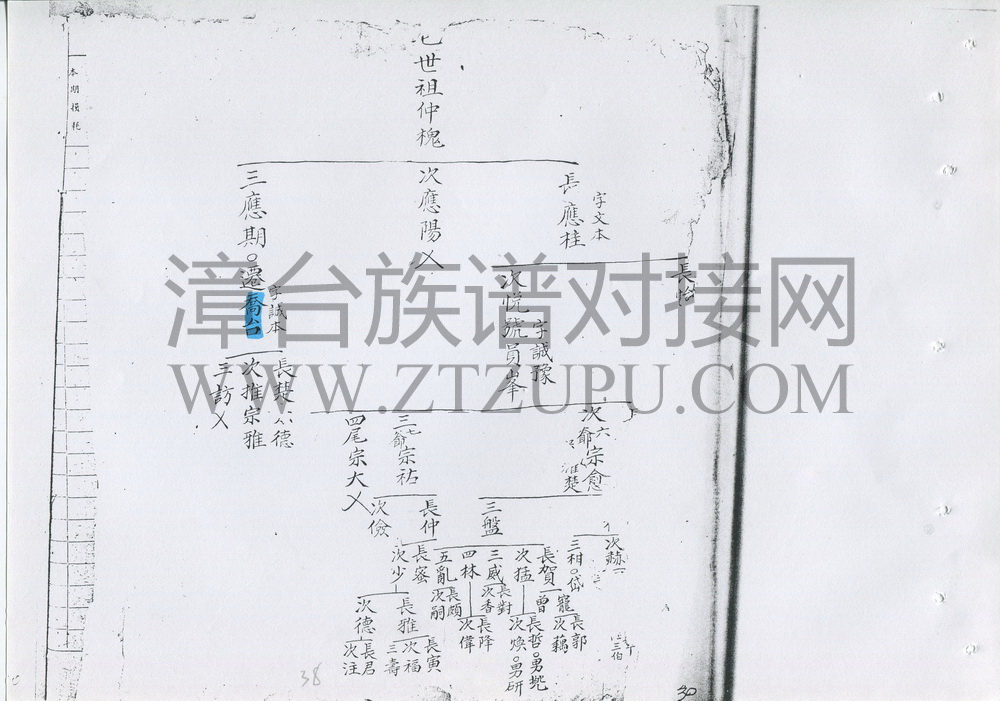 世祖仲槐
長應桂
字文本
次應陽
三應期
遷喬台
字誠本
長
次悅號員峯
字誠豫
長楚
德
次推宗雅
三訪
次六爺宗愈
楚
三七爺宗祐
四尾宗大
長仲
次儉
三盤
次赫
三柑
岱
長賀
次猛
三威
四林
五亂
長蜜
次少
寵
曾
長對
次香
長頗
次嗣
長郭
次藕
長哲
男
次煥
男研
長降
次偉
長雅
次德
長寅
次福
三壽
長君
次注
三伯
本期損耗
漳台族谱对接网
WWW.ZTZUPU.COM
38
30